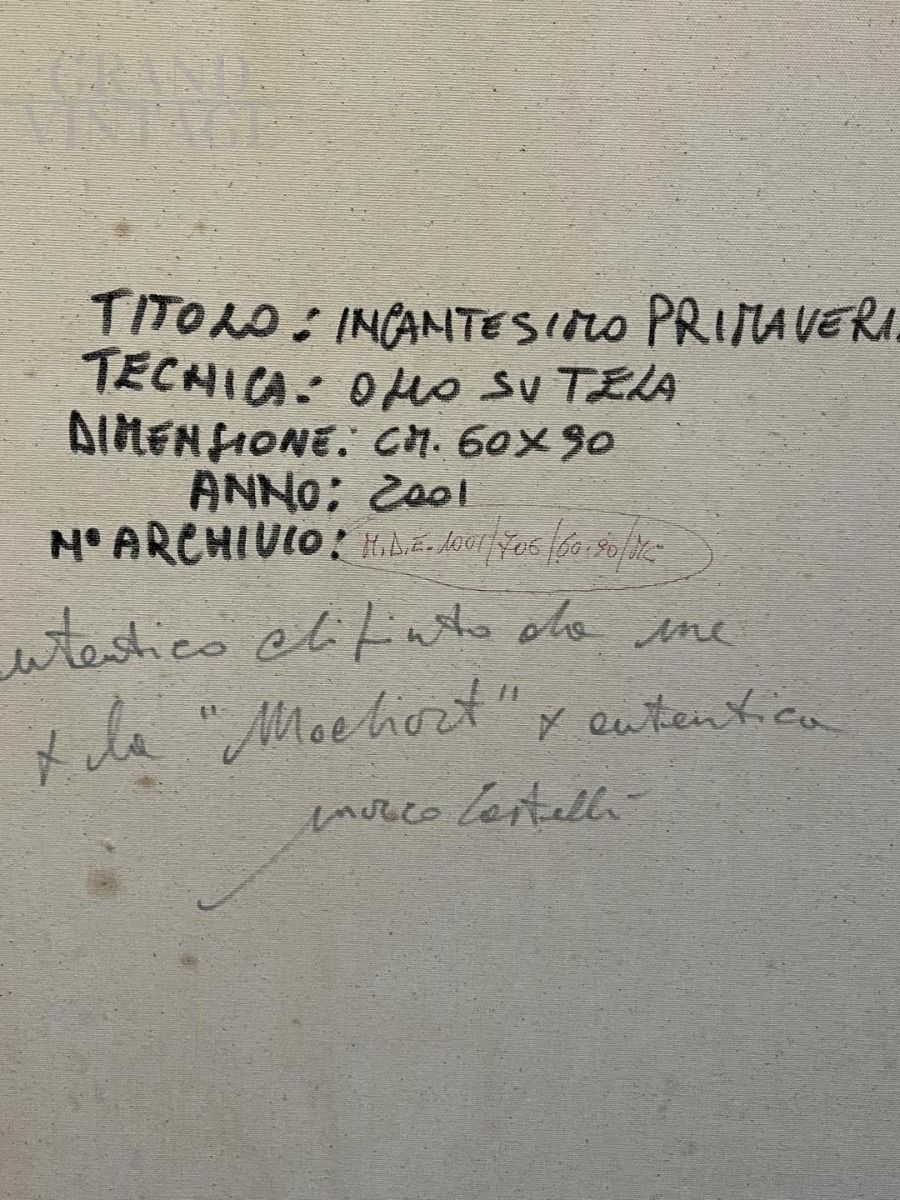 GRAND
VINTAGE
TITOLO: INCANTESIMO PRIMAVERI
TECNICA: OLIO SU TELA
DIMENSIONE: CM. 60X90
ANNO: 2001
N° ARCHIVIO: M.D.E. 1001/706/60.90/MC
utentico dipinto da me
x la "Mochort" x autentica
marco Castelli